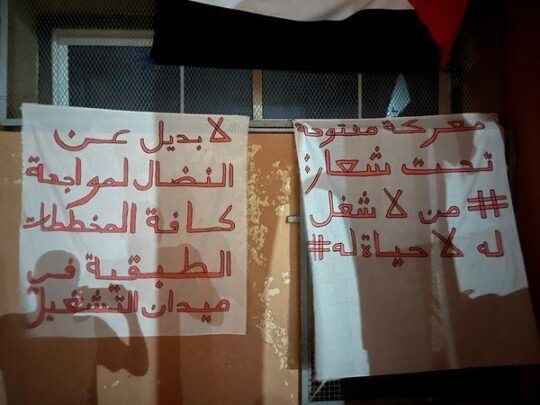 معركة مفتوحة
تحت شعار:
## من لا شغل
له لا حياة له#
لا بديل عن
النضال لمواجهة
كافة المخططات
الطبقية في
ميدان التشغيل